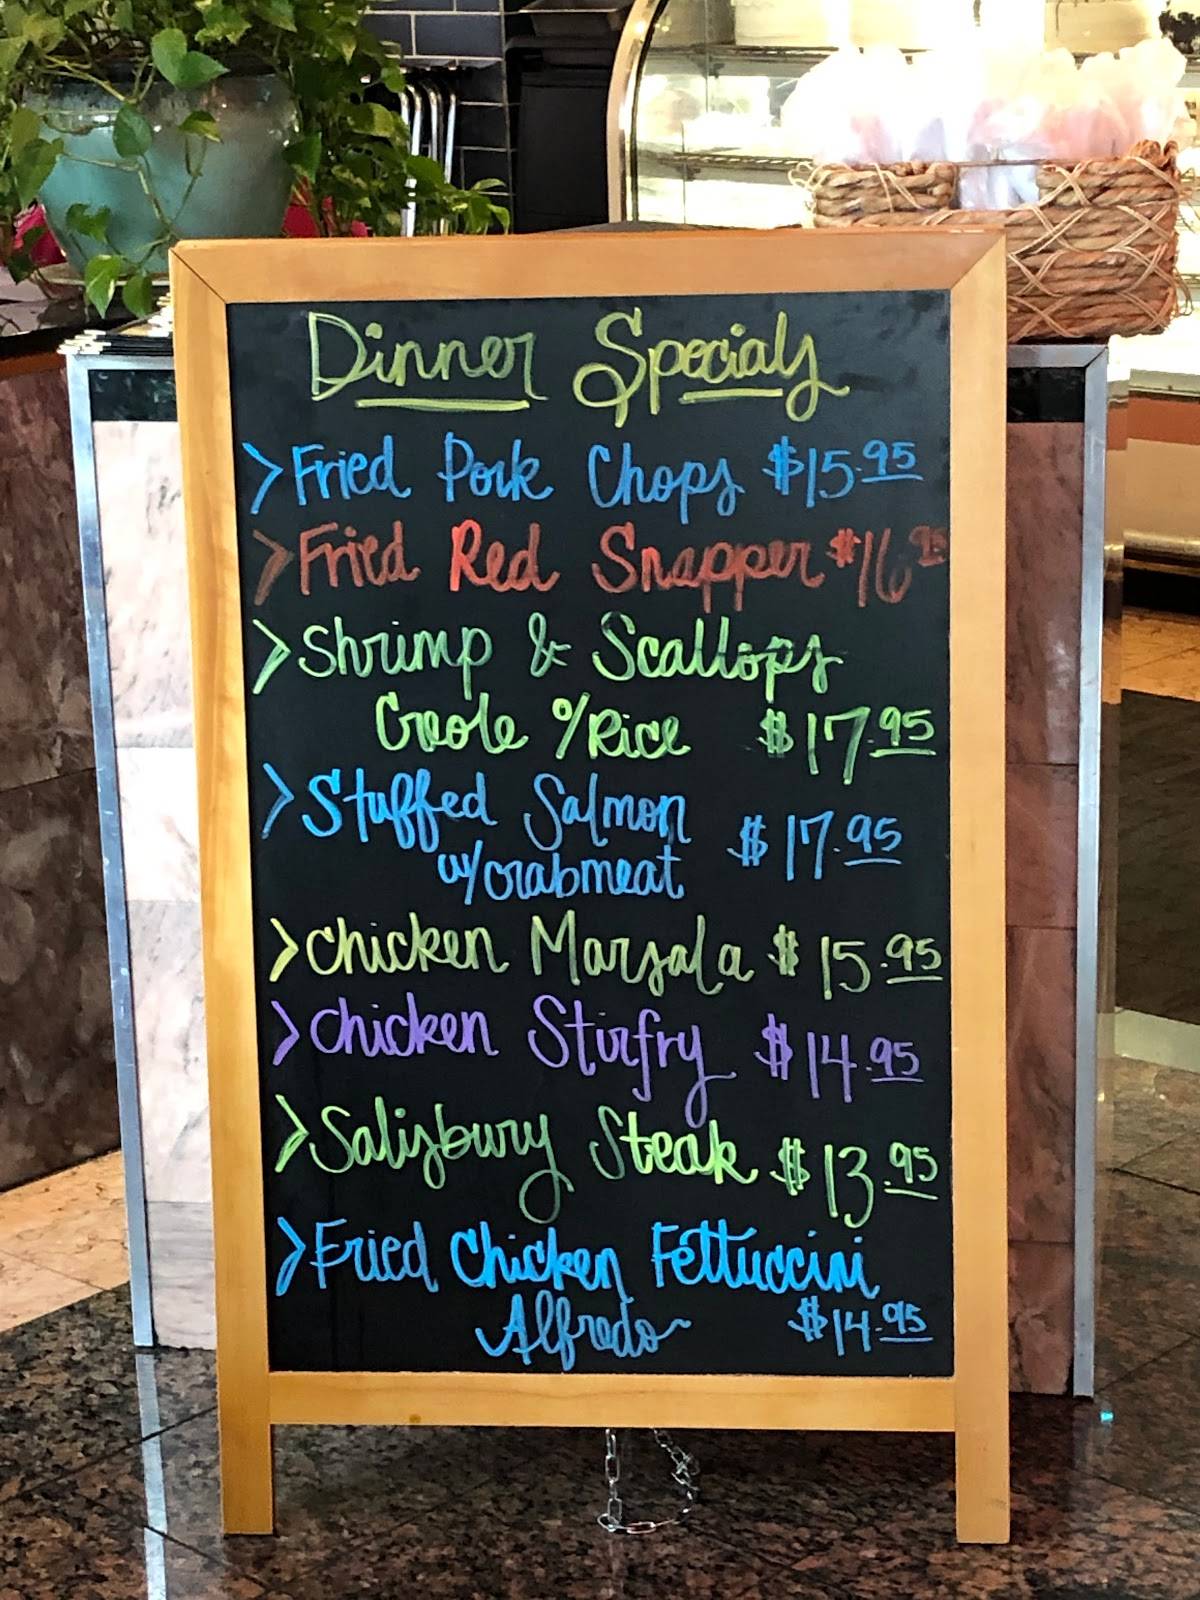 Dinner Specials
>Fried Pork Chops $15.95
>Fried Red Snapper $16.95
>Shrimp & Scallops
Creole %Rice $17.95
>Stuffed Salmon
w/crabmeat $17.95
>Chicken Marsala $15.95
>Chicken Stirfry $14.95
>Salisbury Steak $13.95
>Fried Chicken Fettuccini
Alfredo $14.95